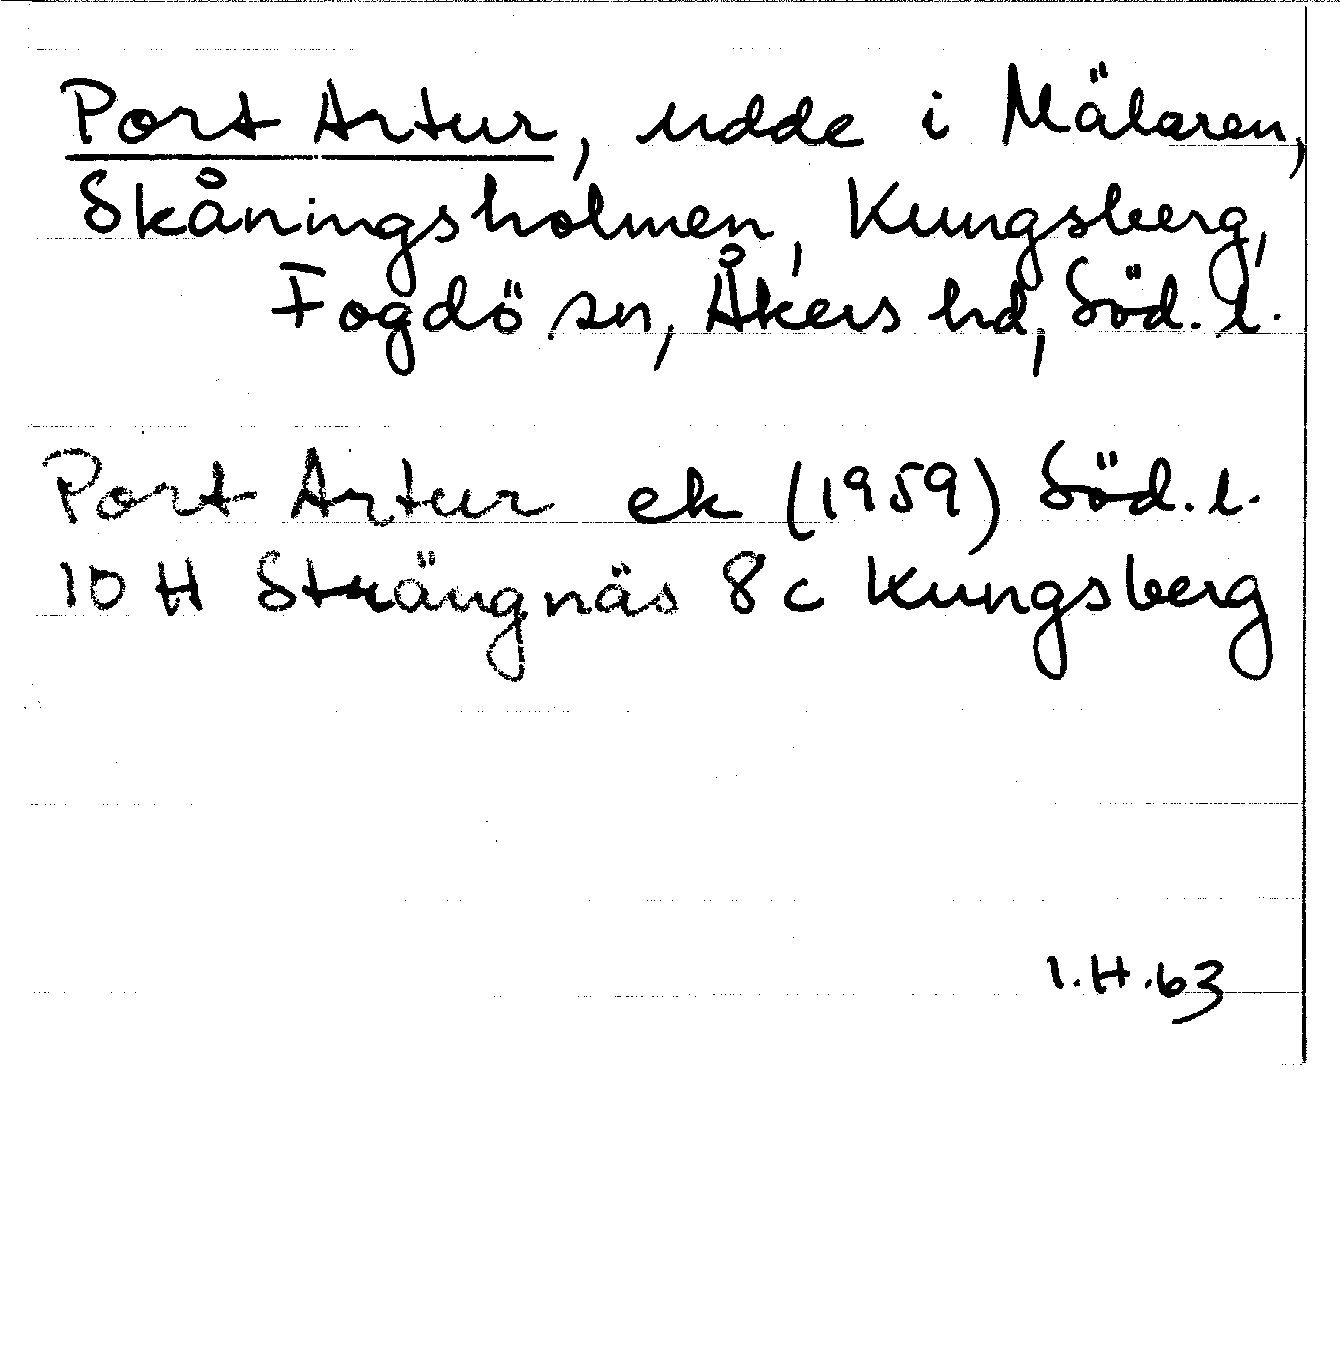 Port Artur, udde i Mälaren,
Skåningsholmen, Kungsberg,
Fogdö sn, Åkers hd, Söd. l.
Port Artur ek (1959) Söd. l.
10 H Strängnäs 8 c Kungsberg
I.H.63